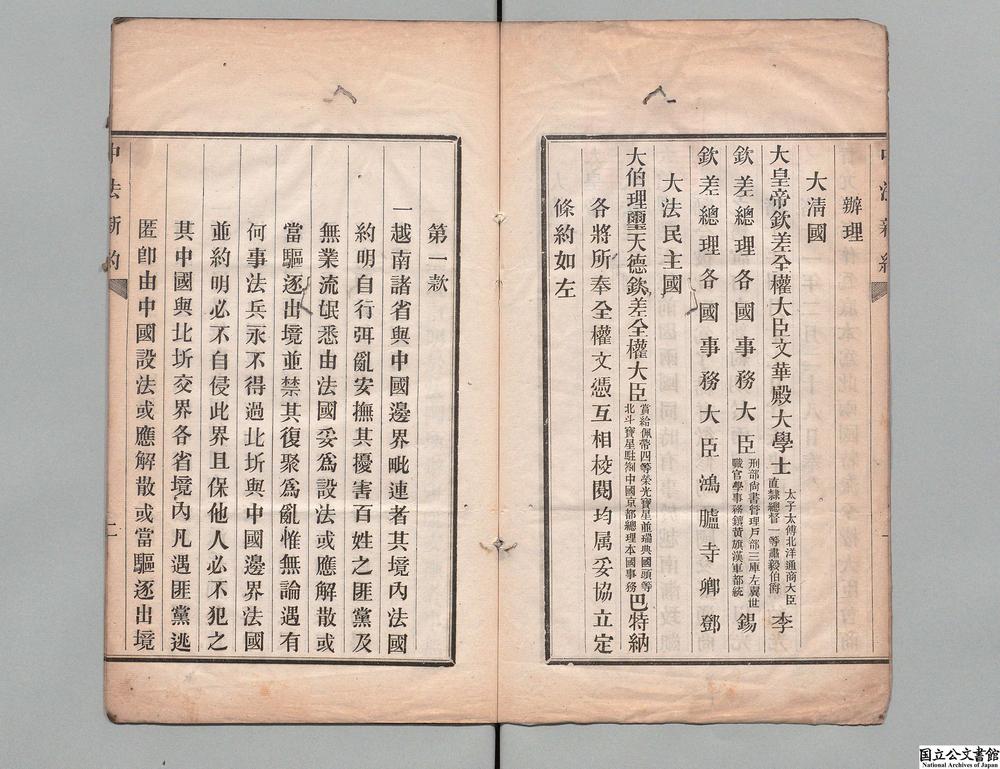 辦理
大淸國
大皇帝欽差全權大臣文華殿大學士太子太傅北洋通商大臣直隸總督一等肅毅伯爵李
欽差總理各國事務大臣刑部尙書管理戶部三庫左翼世職官學事務鑲黃旗漢軍都統錫
欽差總理各國事務大臣鴻臚寺卿鄧
大法民主國
大伯理璽天德欽差全權大臣賞給佩帶四等榮光寶星並瑞典國頭等北斗寶星駐劄中國京都總理本國事務巴特納
各將所奉全權文憑互相校閱均屬妥協立定
條約如左
中法新約
一
第一款
一越南諸省與中國邊界毗連者其境內法國
約明自行弭亂安撫其擾害百姓之匪黨及
無業流氓悉由法國妥爲設法或應解散或
當驅逐出境並禁其復聚爲亂惟無論遇有
何事法兵永不得過北圻與中國邊界法國
並約明必不自侵此界且保他人必不犯之
其中國與北圻交界各省境內凡遇匪黨逃
匿卽由中國設法或應解散或當驅逐出境
中法新約
二
国立公文書館
National Archives of Japan